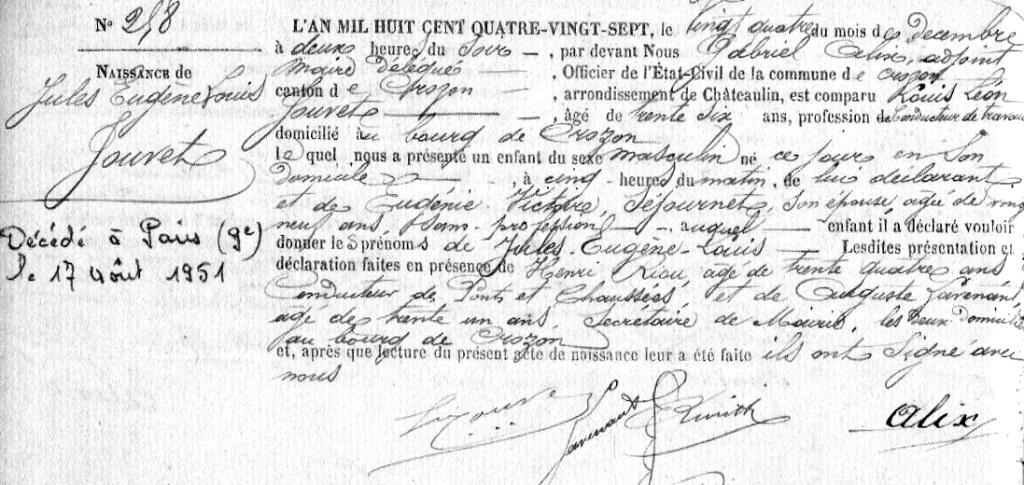 N° 258
NAISSANCE de
Jules Eugène Louis
Jouvet
Décédé à Paris (9e)
le 17 Août 1951
L'AN MIL HUIT CENT QUATRE-VINGT-SEPT, le vingt quatre du mois de decembre
à deux heures du soir, par devant Nous Gabriel Alix, adjoint
Maire délégué, Officier de l'État-Civil de la commune de Crozon
canton de Crozon, arrondissement de Châteaulin, est comparu Louis Léon
Jouvet, âgé de trente six ans, profession de conducteur de travaux
domicilié au bourg de Crozon
le quel nous a présenté un enfant du sexe masculin né ce jour en son
domicile, à cinq heures du matin, de lui déclarant
et de Eugénie Victoire Séjournet, son épouse agée de vingt
neuf ans, sans profession auquel enfant il a déclaré vouloir
donner les prénoms de Jules-Eugène-Louis Lesdites présentation et
déclaration faites en présence de Henri Riou, agé de trente quatre ans
Conducteur des Ponts et Chaussées, et de Auguste
agé de trente un ans, Secrétaire de Mairie, les deux domiciliés
au bourg de Crozon
et, après que lecture du présent acte de naissance leur a été faite ils ont signé avec
nous
Alix